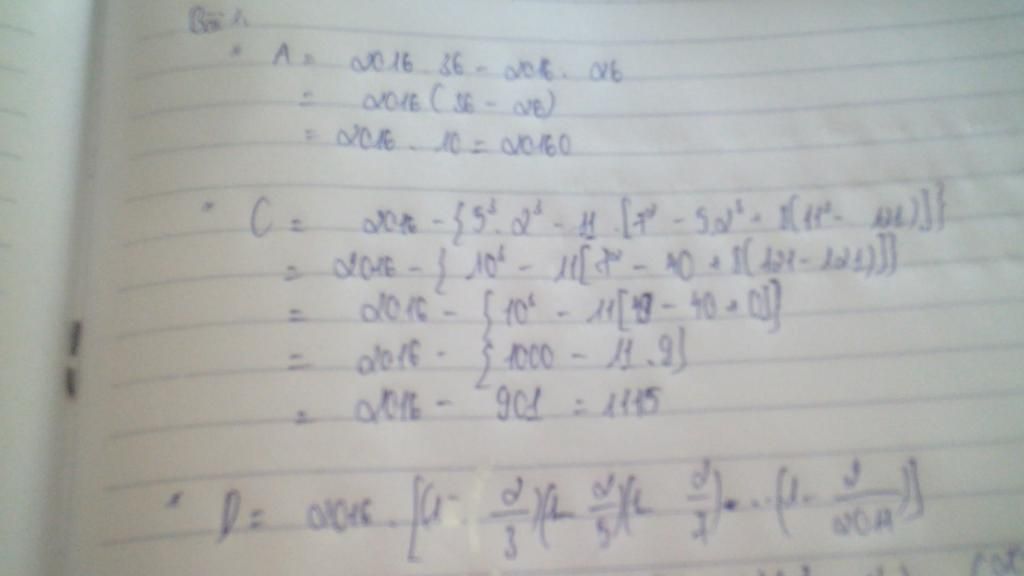 Bài 1.
* A = 2016 . 36 - 2016 . 26
= 2016 (36 - 26)
= 2016 . 10 = 20160
* C = 2016 - {5³ . 2³ - 11 . [7² - 5.2³ + 8(11² - 121)]}
= 2016 - { 10³ - 11[7² - 40 + 8(121 - 121)]}
= 2016 - {10³ - 11[49 - 40 + 0]}
= 2016 - {1000 - 11 . 9}
= 2016 - 901 = 1115
* D = 2016 . [(1 - 2/3)(1 - 2/5)(1 - 2/7) ... (1 - 2/2011)]